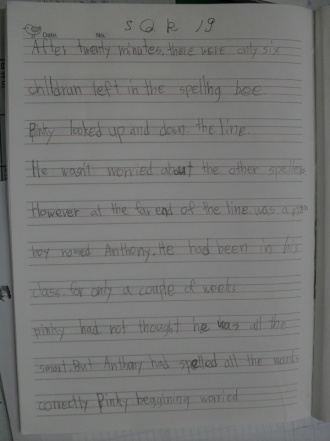 SQR 19
Date. No.
After twenty minutes. there were only six
children left in the spelling bee
Pinky looked up and down the line.
He wasn't worried about the other
However at the far end of the line was a
boy named Anthony. He had been in his
class. for only a couple of weeks
pinky had not thought he was all the
smart. But Anthony had spelled all the words
correctly Pinky beginning worried